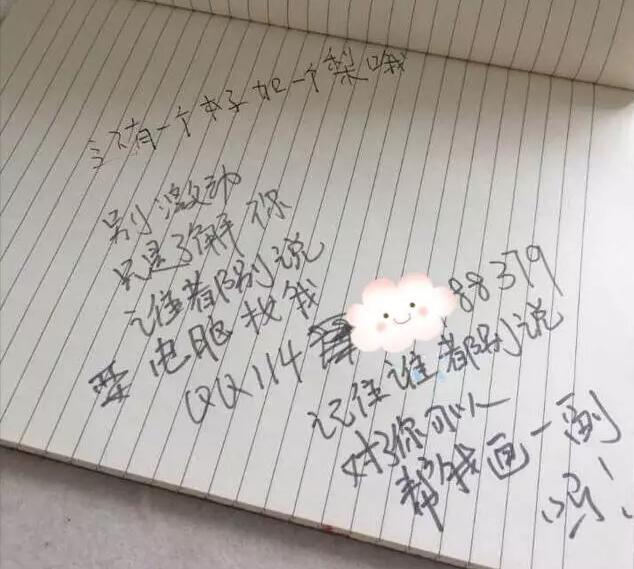 有一个本子如一个梨哦
别激动
只是了解你
谁都别说
电脑找我
QQ114 88379
记住谁都别说
对了你可以
帮我画一副
吗！